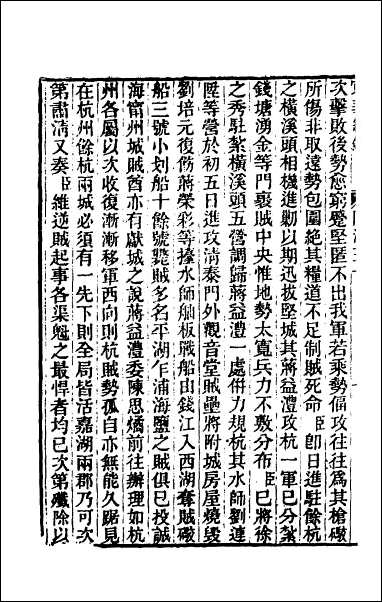 次擊敗後勢愈窮蹙堅匿不出我軍若乘勢偪攻往往為其槍礮
所傷非取遠勢包圍絕其糧道不足制賊死命臣卽日進駐餘杭
之橫溪頭相機進勦以期迅拔堅城其蔣益澧攻杭一軍已分紮
錢塘湧金等門襲賊中央惟地勢太寬兵力不敷分布臣已將徐
之秀駐紮橫溪頭五營調歸蔣益澧一處倂力規杭其水師劉連
陞等營於初五日進攻淸泰門外觀音堂賊壘將附城房屋燒毀
劉培元復飭蔣榮彩等擡水師舢板戰船由錢江入西湖奪賊礮
船三號小划船十餘號斃賊多名平湖乍浦海鹽之賊俱已投誠
海甯州城賊酋亦有獻城之說蔣益澧委陳思燏前往辦理如杭
州各屬以次收復漸漸移軍西向則杭賊勢孤自亦無能久踞見
在杭州餘杭兩城必須有一先下則全局皆活嘉湖兩郡乃可次
第肅淸又奏臣維逆賊起事各渠魁之最悍者均已次第殲除以